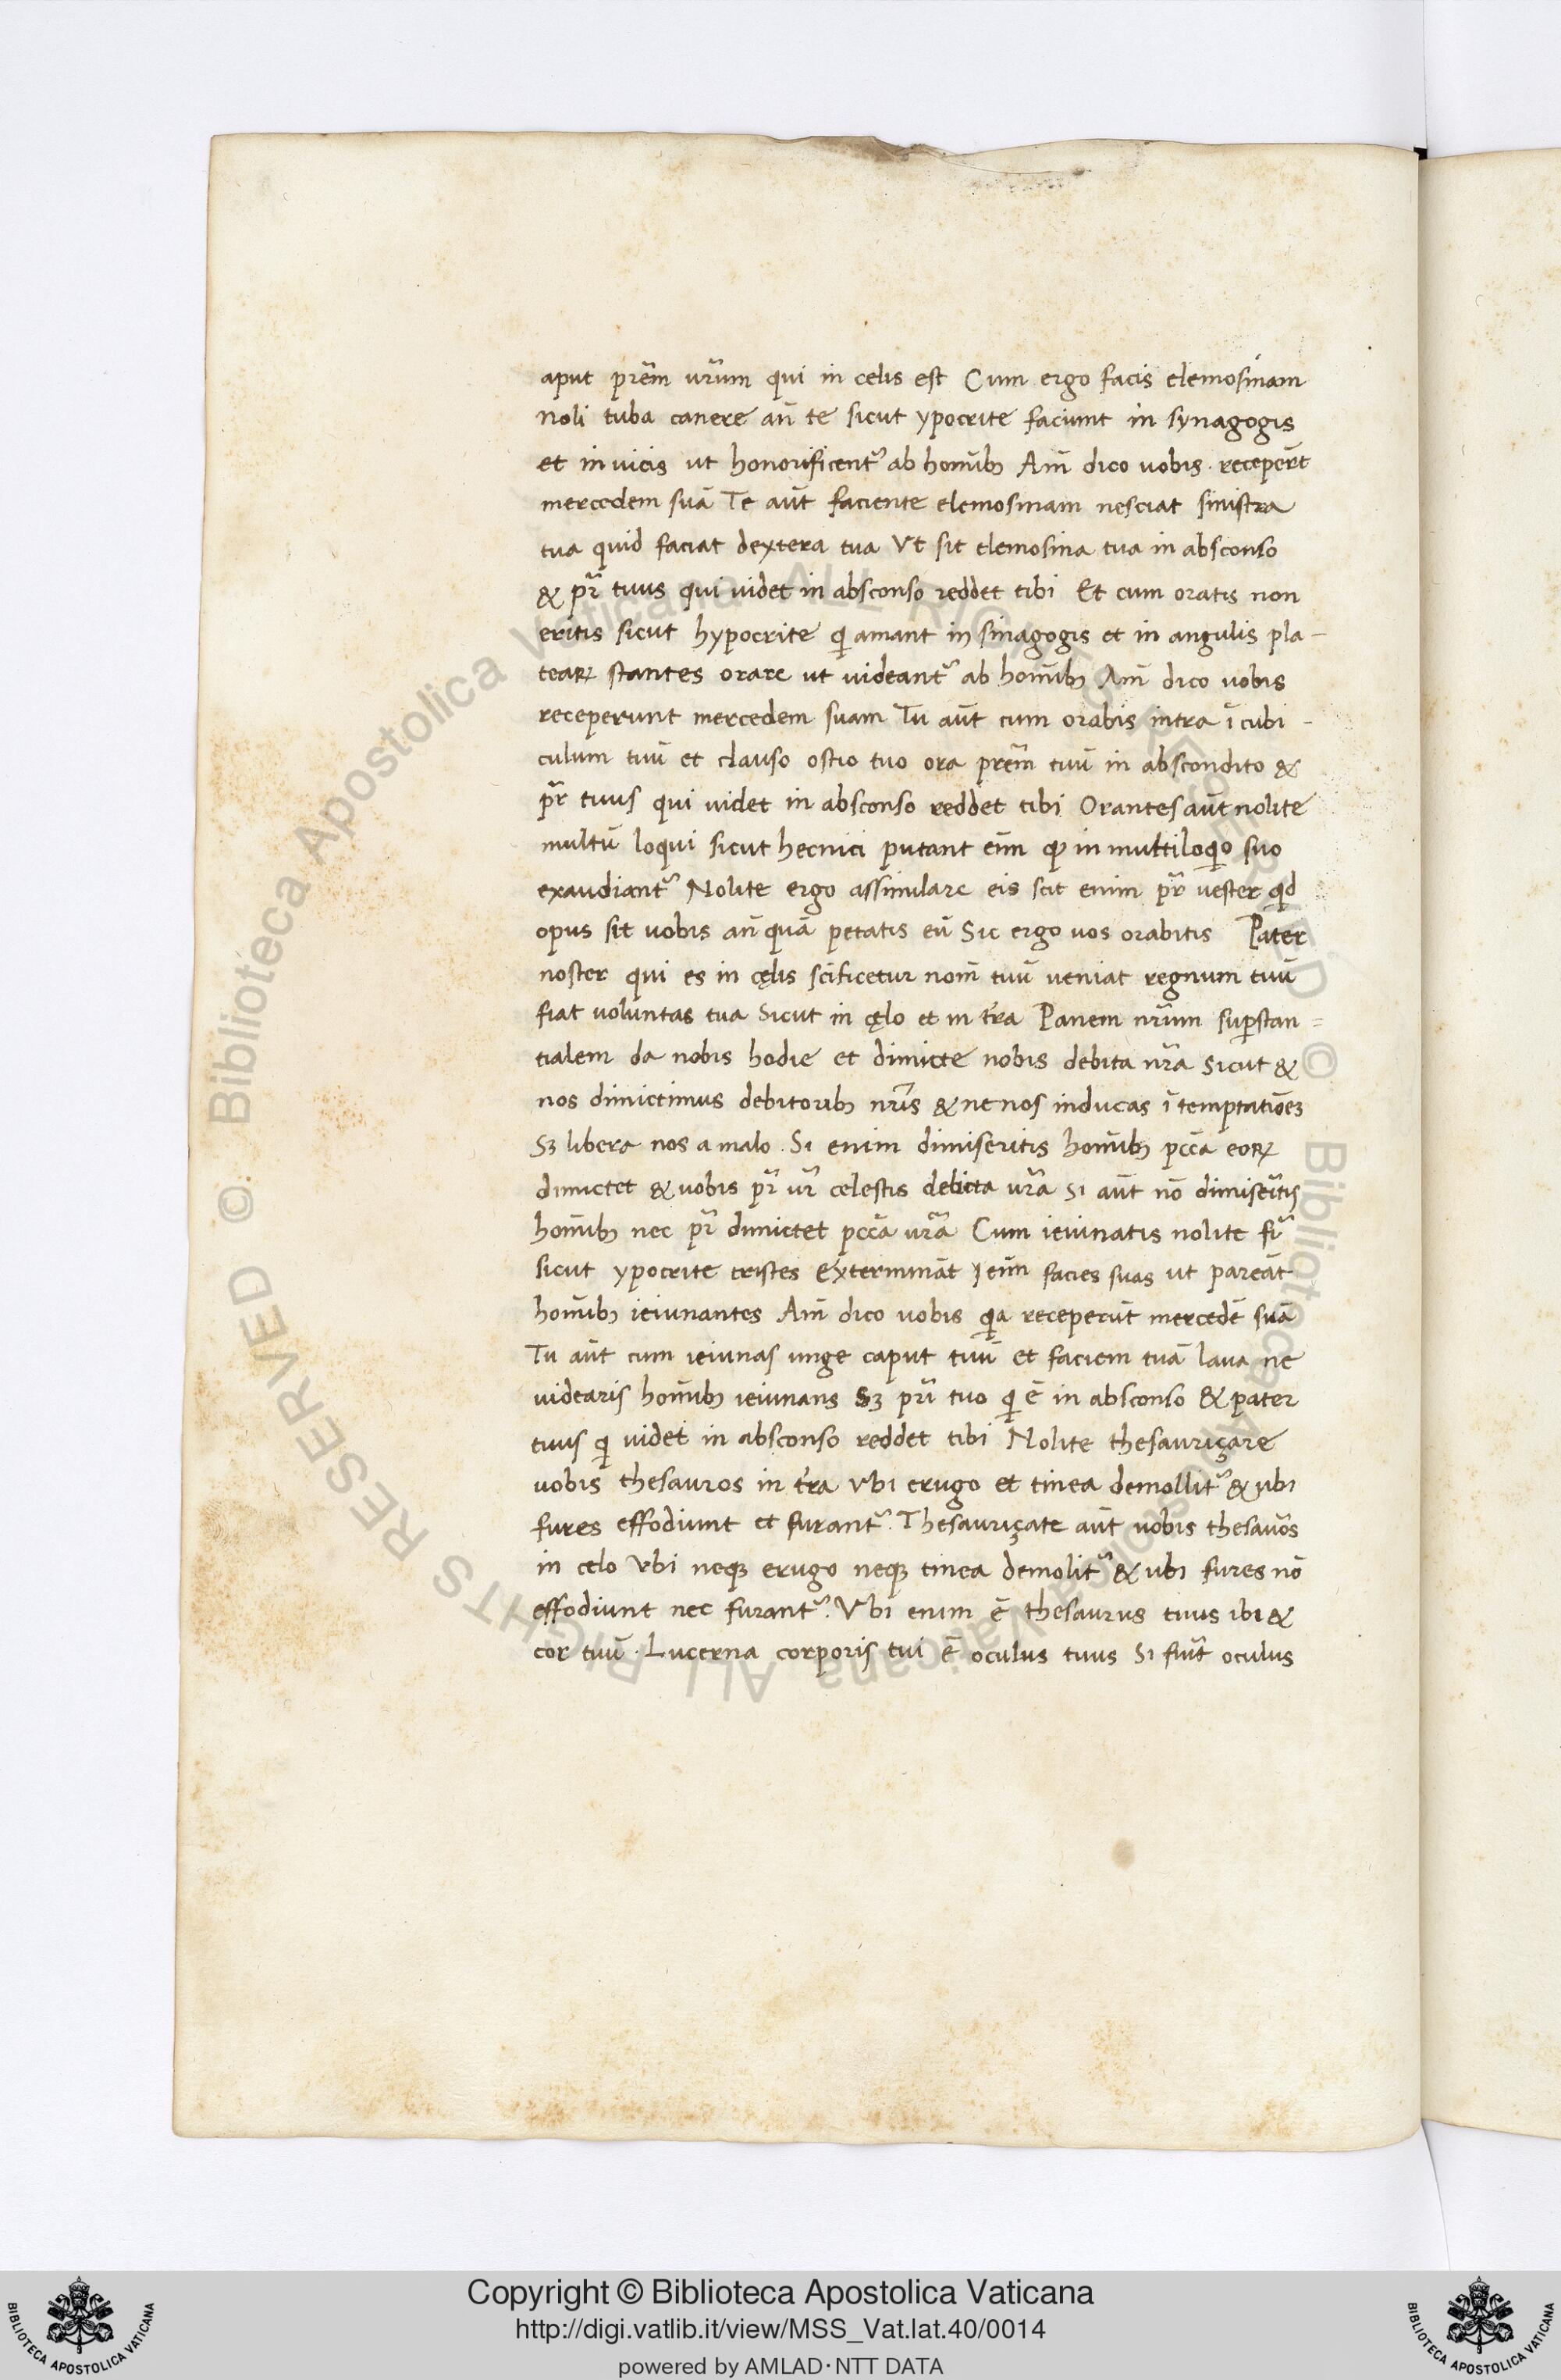 aput pr̃em ur̃um qui in celis est Cum ergo facis elemosinam
noli tuba canere añ te sicut ypocrite faciunt in synagogis
et in uicis ut honorificentᷣ ab hoı̃ibꝫ Am̃ dico uobis · receper̃t
mercedem suã Te aũt faciente elemosinam nesciat sinistra
tua quid faciat dextera tua Vt sit elemosina tua in absconso
& pr̃ tuus qui uidet in absconso reddet tibi Et cum oratis non
eritis sicut hypocrite qͥ amant in sinagogis et in angulis pla-
teaꝝ stantes orare ut uideantᷣ ab hoı̃ibꝫ Am̃ dico uobis
receperunt mercedem suam Tu aũt cum orabis intra ĩ cubi-
culum tuũ et clauso ostio tuo ora pr̃em tuũ in abscondito &
pr̃ tuus qui uidet in absconso reddet tibi Orantes aũt nolite
multũ loqui sicut hecnici putant eñi ꝙ in multiloqͥo suo
exaudiantᷣ Nolite ergo assimilare eis scit enim pr̃ uester qͥd
opus sit uobis añ quã petatis eũ Sic ergo uos orabitis Pater
noster qui es in cęlis sc̃ificetur nom̃ tuũ ueniat regnum tuũ
fiat uoluntas tua Sicut in cęlo et in t̃ra Panem nr̃um suꝑstan=
tialem da nobis hodie et dimicte nobis debita nr̃a Sicut &
nos dimictimus debitoribꝫ nr̃is & ne nos inducas ĩ temptatiõeꝫ
Sꝫ libera nos a malo · Si enim dimiseritis hoı̃ibꝫ pcc̃a eoꝝ
dimictet & uobis pr̃ ur̃ celestis delicta ur̃a Si aũt nõ dimiser̃itis
hoı̃ibꝫ nec pr̃ dimictet pcc̃a ur̃a Cum ieiunatis nolite fi᷑
sicut ypocrite tristes exterminãt eñi facies suas ut pareãt
hoı̃ibꝫ ieiunantes Am̃ dico uobis qͥa receperũt mercedẽ suã
Tu aũt cum ieiunas unge caput tuũ et faciem tuã laua ne
uidearis hoı̃ibꝫ ieiunans Sꝫ pr̃i tuo qͥ ẽ in absconso & pater
tuus qͥ uidet in absconso reddet tibi Nolite thesauriçare
uobis thesauros in t̃ra Vbi erugo et tinea demollitᷣ & ubi
fures effodiunt et furantᷣ. Thesauriçate aũt uobis thesaũos
in celo Vbi neqꝫ erugo neqꝫ tinea demolitᷣ & ubi fures nõ
effodiunt nec furantᷣ. Vbi enim ẽ thesaurus tuus ibi &
cor tuũ · Lucerna corporis tui ẽ oculus tuus Si fũit oculus
Copyright © Biblioteca Apostolica Vaticana
http://digi.vatlib.it/view/MSS_Vat.lat.40/0014
powered by AMLAD·NTT DATA
BIBLIOTECA APOSTOLICA VATICANA
BIBLIOTECA APOSTOLICA VATICANA
© Biblioteca Apostolica Vaticana ALL RIGHTS RESERVED
© Biblioteca Apostolica Vaticana ALL RIGHTS RESERVED